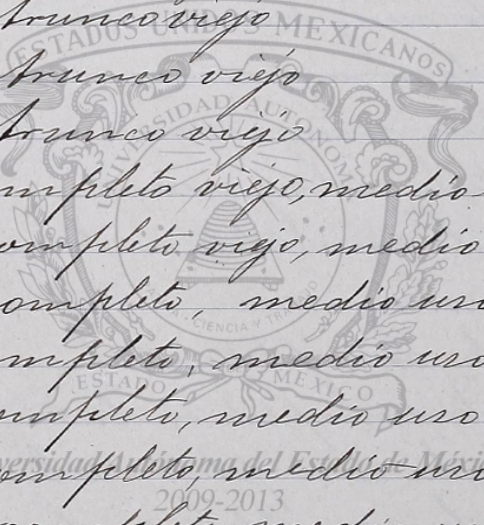 trunco viejo
trunco viejo
trunco viejo
mpleto viejo, medio
ompleto viejo, medio
ompleto, medio uso
mpleto, medio uso
ompleto, medio uso
ompleto, medio uso
ESTADOS UNIDOS MEXICANOS
UNIVERSIDAD AUTONOMA
CIENCIA Y TRABAJO
ESTADO MEXICO
versidad Autónoma del Estado de Méxi
2009-2013